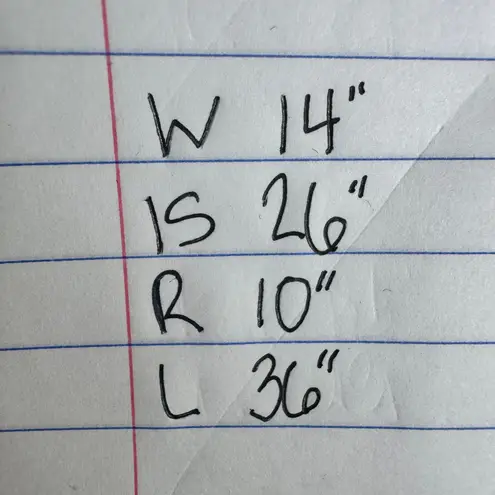 W 14"
IS 26"
R 10"
L 36"